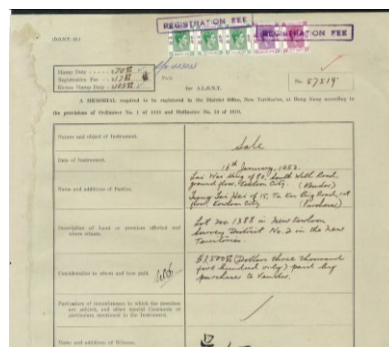 (D.O.N.T. 26.)
REGISTRATION FEE
REGISTRATION FEE
Stamp Duty
Registration Fee
Excess Stamp Duty
Paid
for A.L.O.N.T.
No. 87519
A MEMORIAL required to be registered in the District Office, New Territories, at Hong Kong according to
the provisions of Ordinance No. 1 of 1910 and Ordinance No. 34 of 1910.
Nature and object of Instrument.
Sale
Date of Instrument.
16th January, 1952.
Name and additions of Parties.
Lai Wan Hing of 90, South Wall Road,
ground floor, Kowloon City. (Vendor)
Road, 1st
floor, Kowloon City (Purchaser)
Description of Land or premises affected and
where situate.
Lot No 1388 in New Kowloon
Survey District No. 2 in the New
Territories.
Consideration to whom and how paid.
(Dollars three thousand
five hundred only) paid by
purchaser to Vendor.
Particulars of incumbrances to which the premises
are subject, and other special Covenants or
particulars mentioned in the Instrument.
Name and additions of Witness.